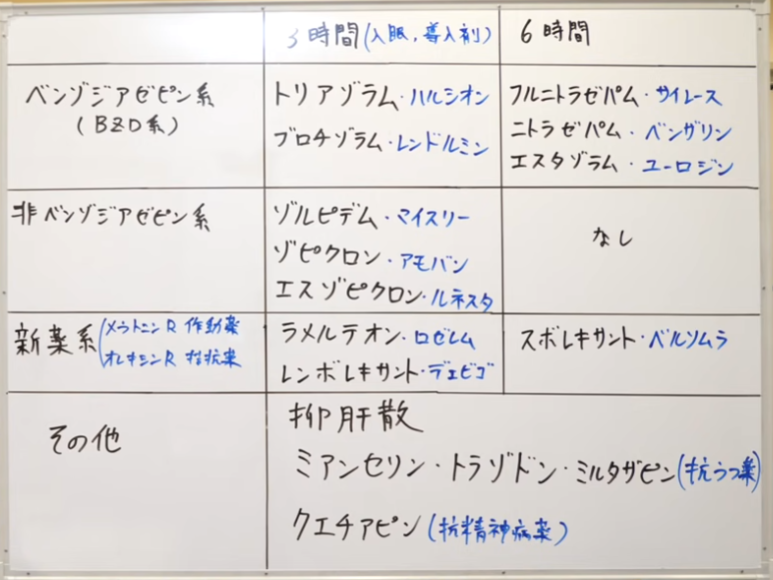 3時間(入眠,導入剤) 6時間
ベンゾジアゼピン系
(BZD系)
トリアゾラム・ハルシオン
ブロチゾラム・レンドルミン
フルニトラゼパム・サイレース
ニトラゼパム・ベンザリン
エスタゾラム・ユーロジン
非ベンゾジアゼピン系
ゾルピデム・マイスリー
ゾピクロン・アモバン
エスゾピクロン・ルネスタ
なし
新薬系
(メラトニンR 作動薬
オレキシンR 拮抗薬
ラメルテオン・ロゼレム
レンボレキサント・デエビゴ
スボレキサント・ベルソムラ
その他
抑肝散
ミアンセリン・トラゾドン・ミルタザピン(抗うつ薬)
クエチアピン(抗精神病薬)